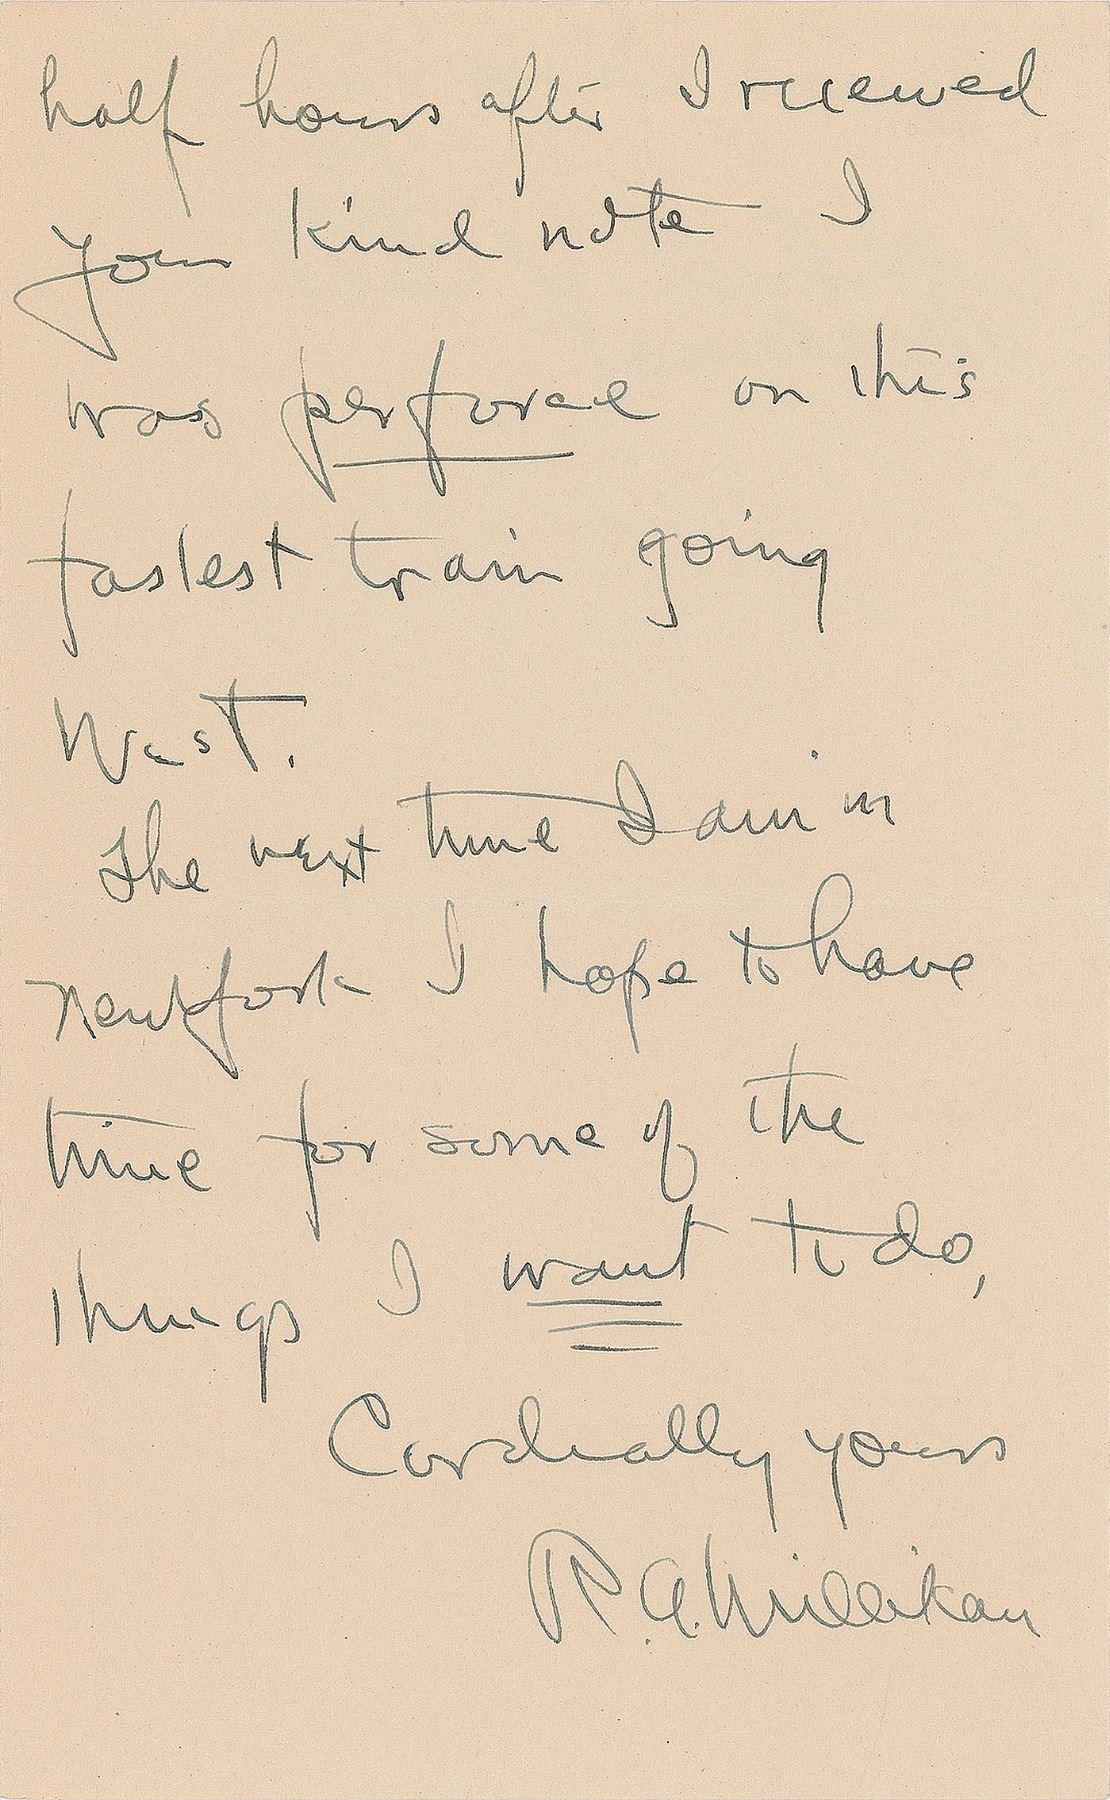 half hours after I received
your kind note I
was perforce on this
fastest train going
West.
The next time I am in
New York I hope to have
time for some of the
things I want to do,
Cordially yours
R. A. Millikan